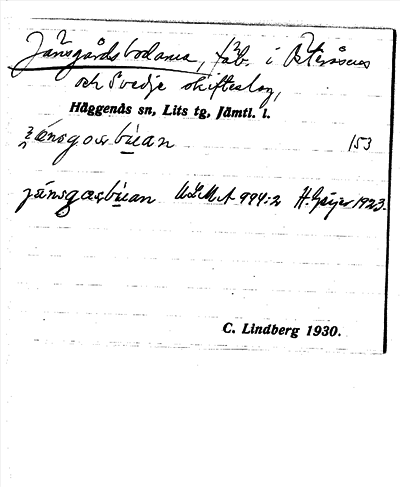 Jänsgårdsbodarna, fäb. i Österåsens
och Svedje skifteslag,
Häggenås sn, Lits tg, Jämtl. l.
jänsgoṣbúan 153
jänsgoṣbúan ULMA 994:2 H. Geijer 1923.
C. Lindberg 1930.